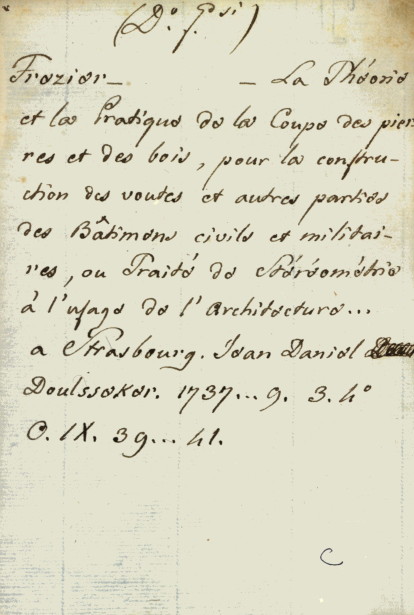 (D.º f.
Frezier_ _ La Théorie
et la Pratique de la Coupe des pier
res et des bois, pour la constru-
ction des voutes et autres parties
des Bâtimens civils et militai-
res, ou Traité de Stéréométrie
à l'usage de l'Architecture...
a Strasbourg. Jean Daniel
Doulsseker. 1737... 9. 3. 4º
O. IX. 39... 41.
C